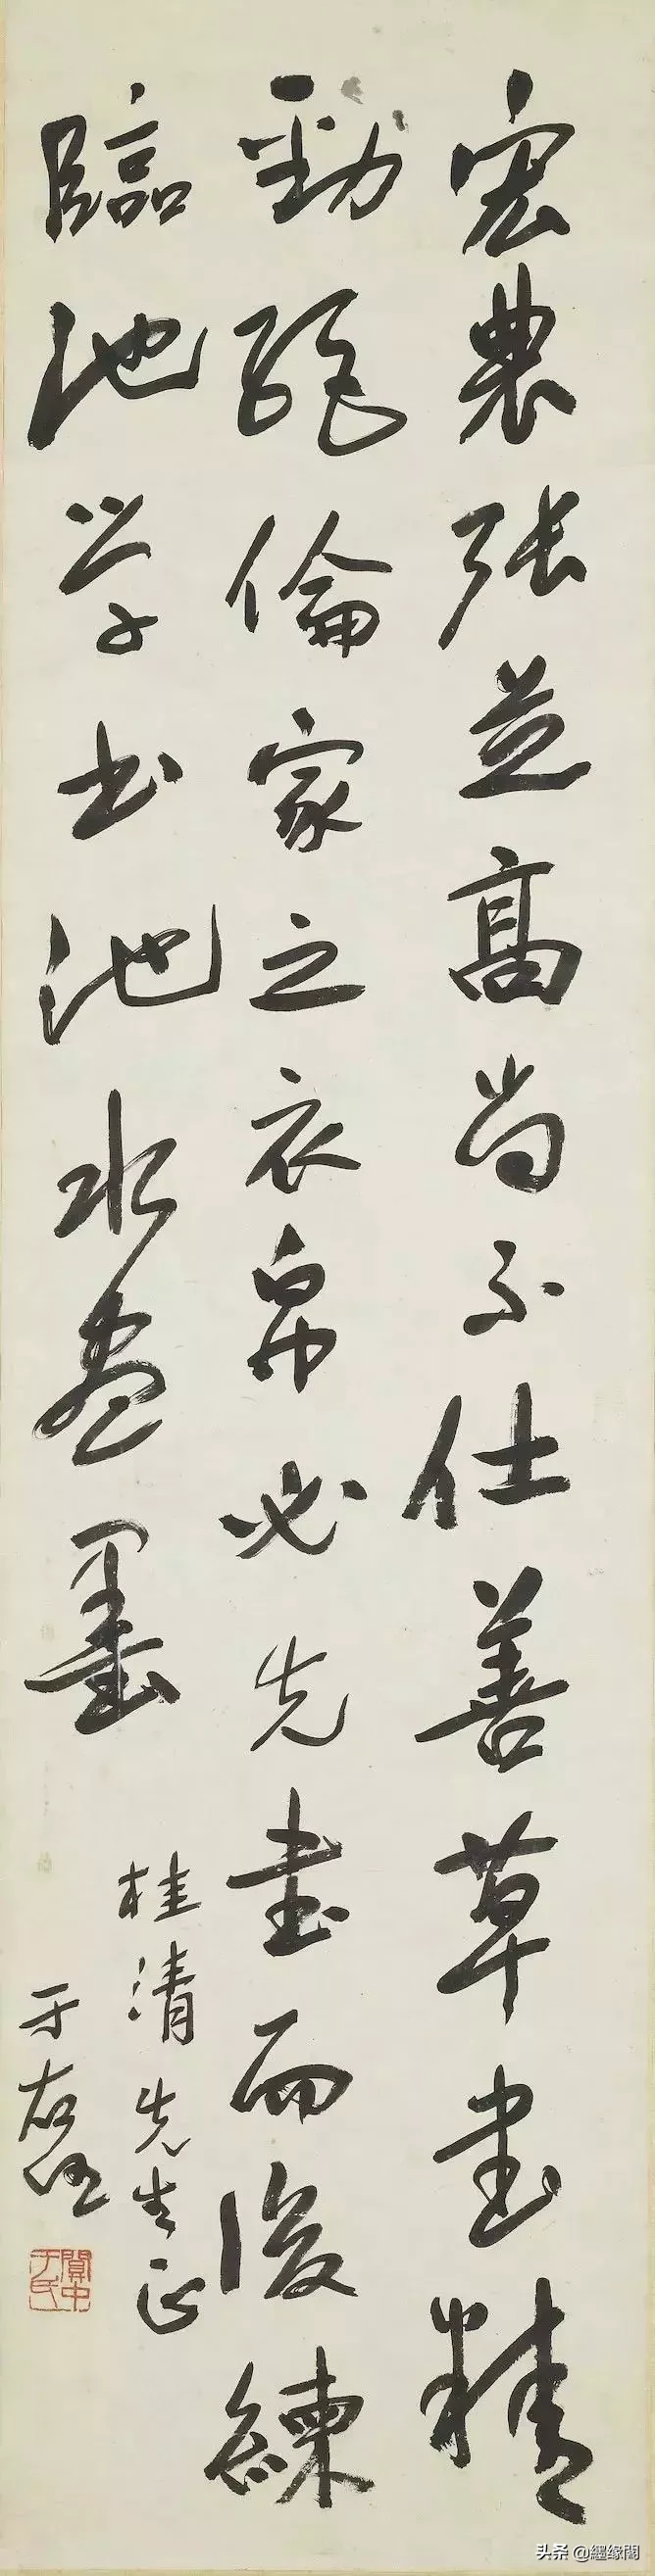 宏農張芝高尚不仕善草書精
勁絕倫家之衣帛必先書而後練
臨池学書池水盡墨
桂清先生正
于右任
關中于氏
头条 @纒缘閣